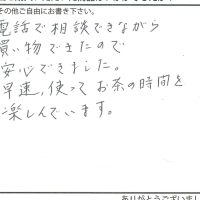 その他ご自由にお書き下さい。
電話で相談できながら
買い物できたので
安心できました。
早速、使ってお茶の時間を
楽しんでいます。
ありがとうございまし